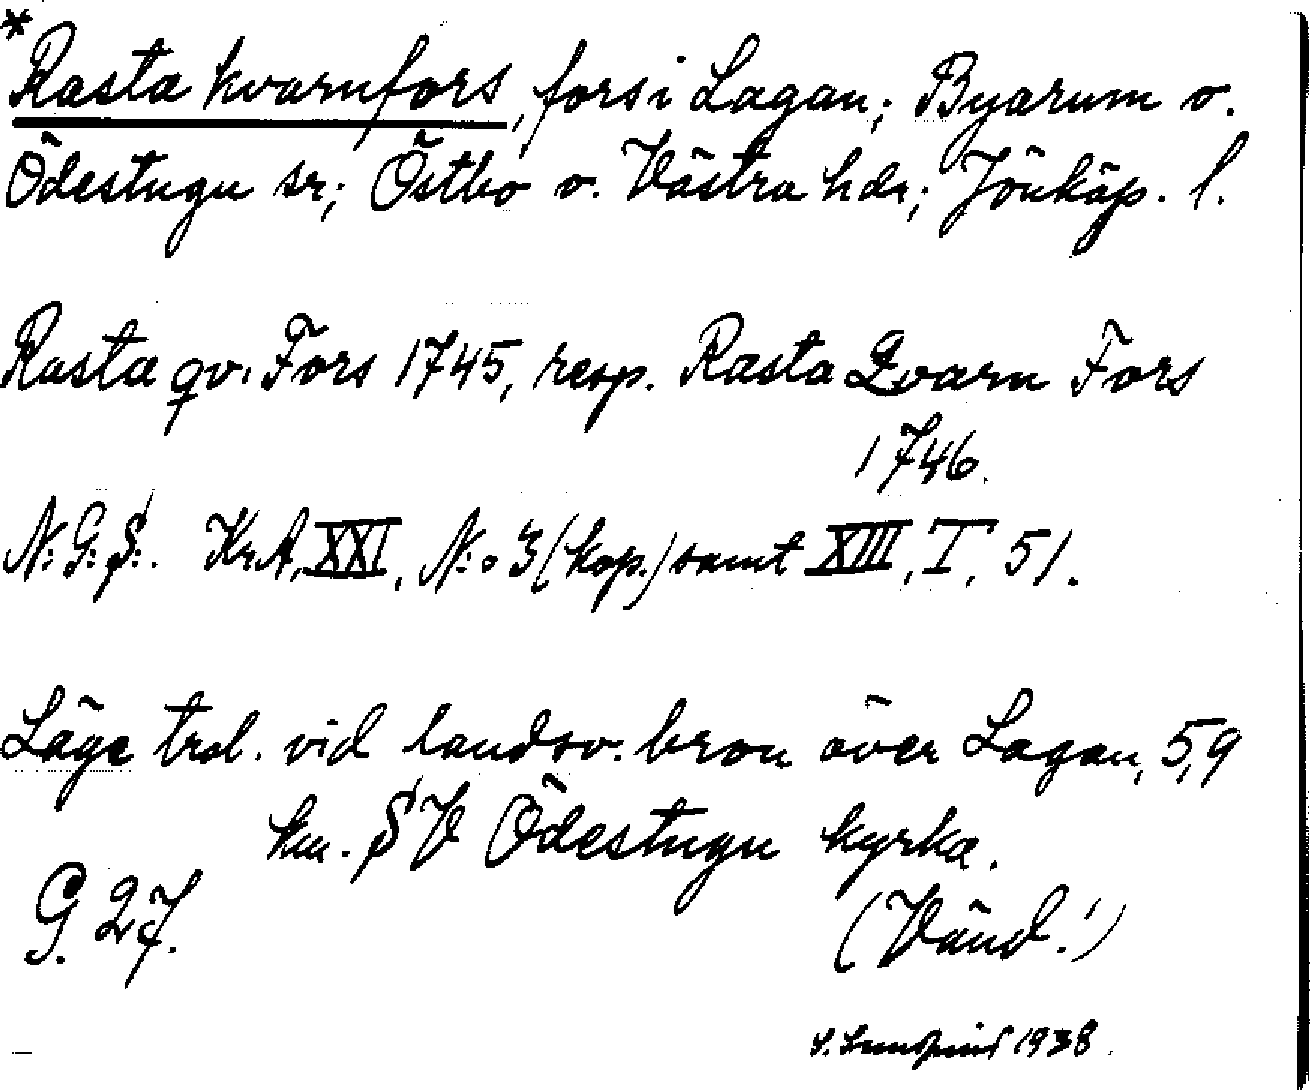 *Rasta kvarnfors, fors i Lagan; Byarum o.
Ödestugu sr; Östbo o. Västra hdr; Jönköp. l.
Rasta qv. Fors 1745, resp. Rasta Qvarn Fors
1746.
N:G:S:. KrA, XXI, N:o 3 (kop.) samt XIII, I, 51.
Läge trol. vid landsv. bron över Lagan, 5,9
km. SV Ödestugu kyrka.
G. 27.
(Vänd!)
1938.